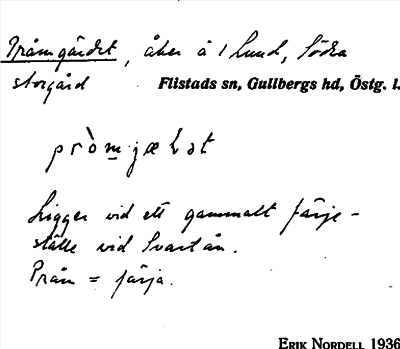 Pråmgärdet, åker å 1 Lund, Södra
storgård
Flistads sn, Gullbergs hd, Östg. l.
pròm·jælət
Ligger vid ett gammalt färje-
ställe vid Svartån.
Pråm = färja.
ERIK NORDELL 1936